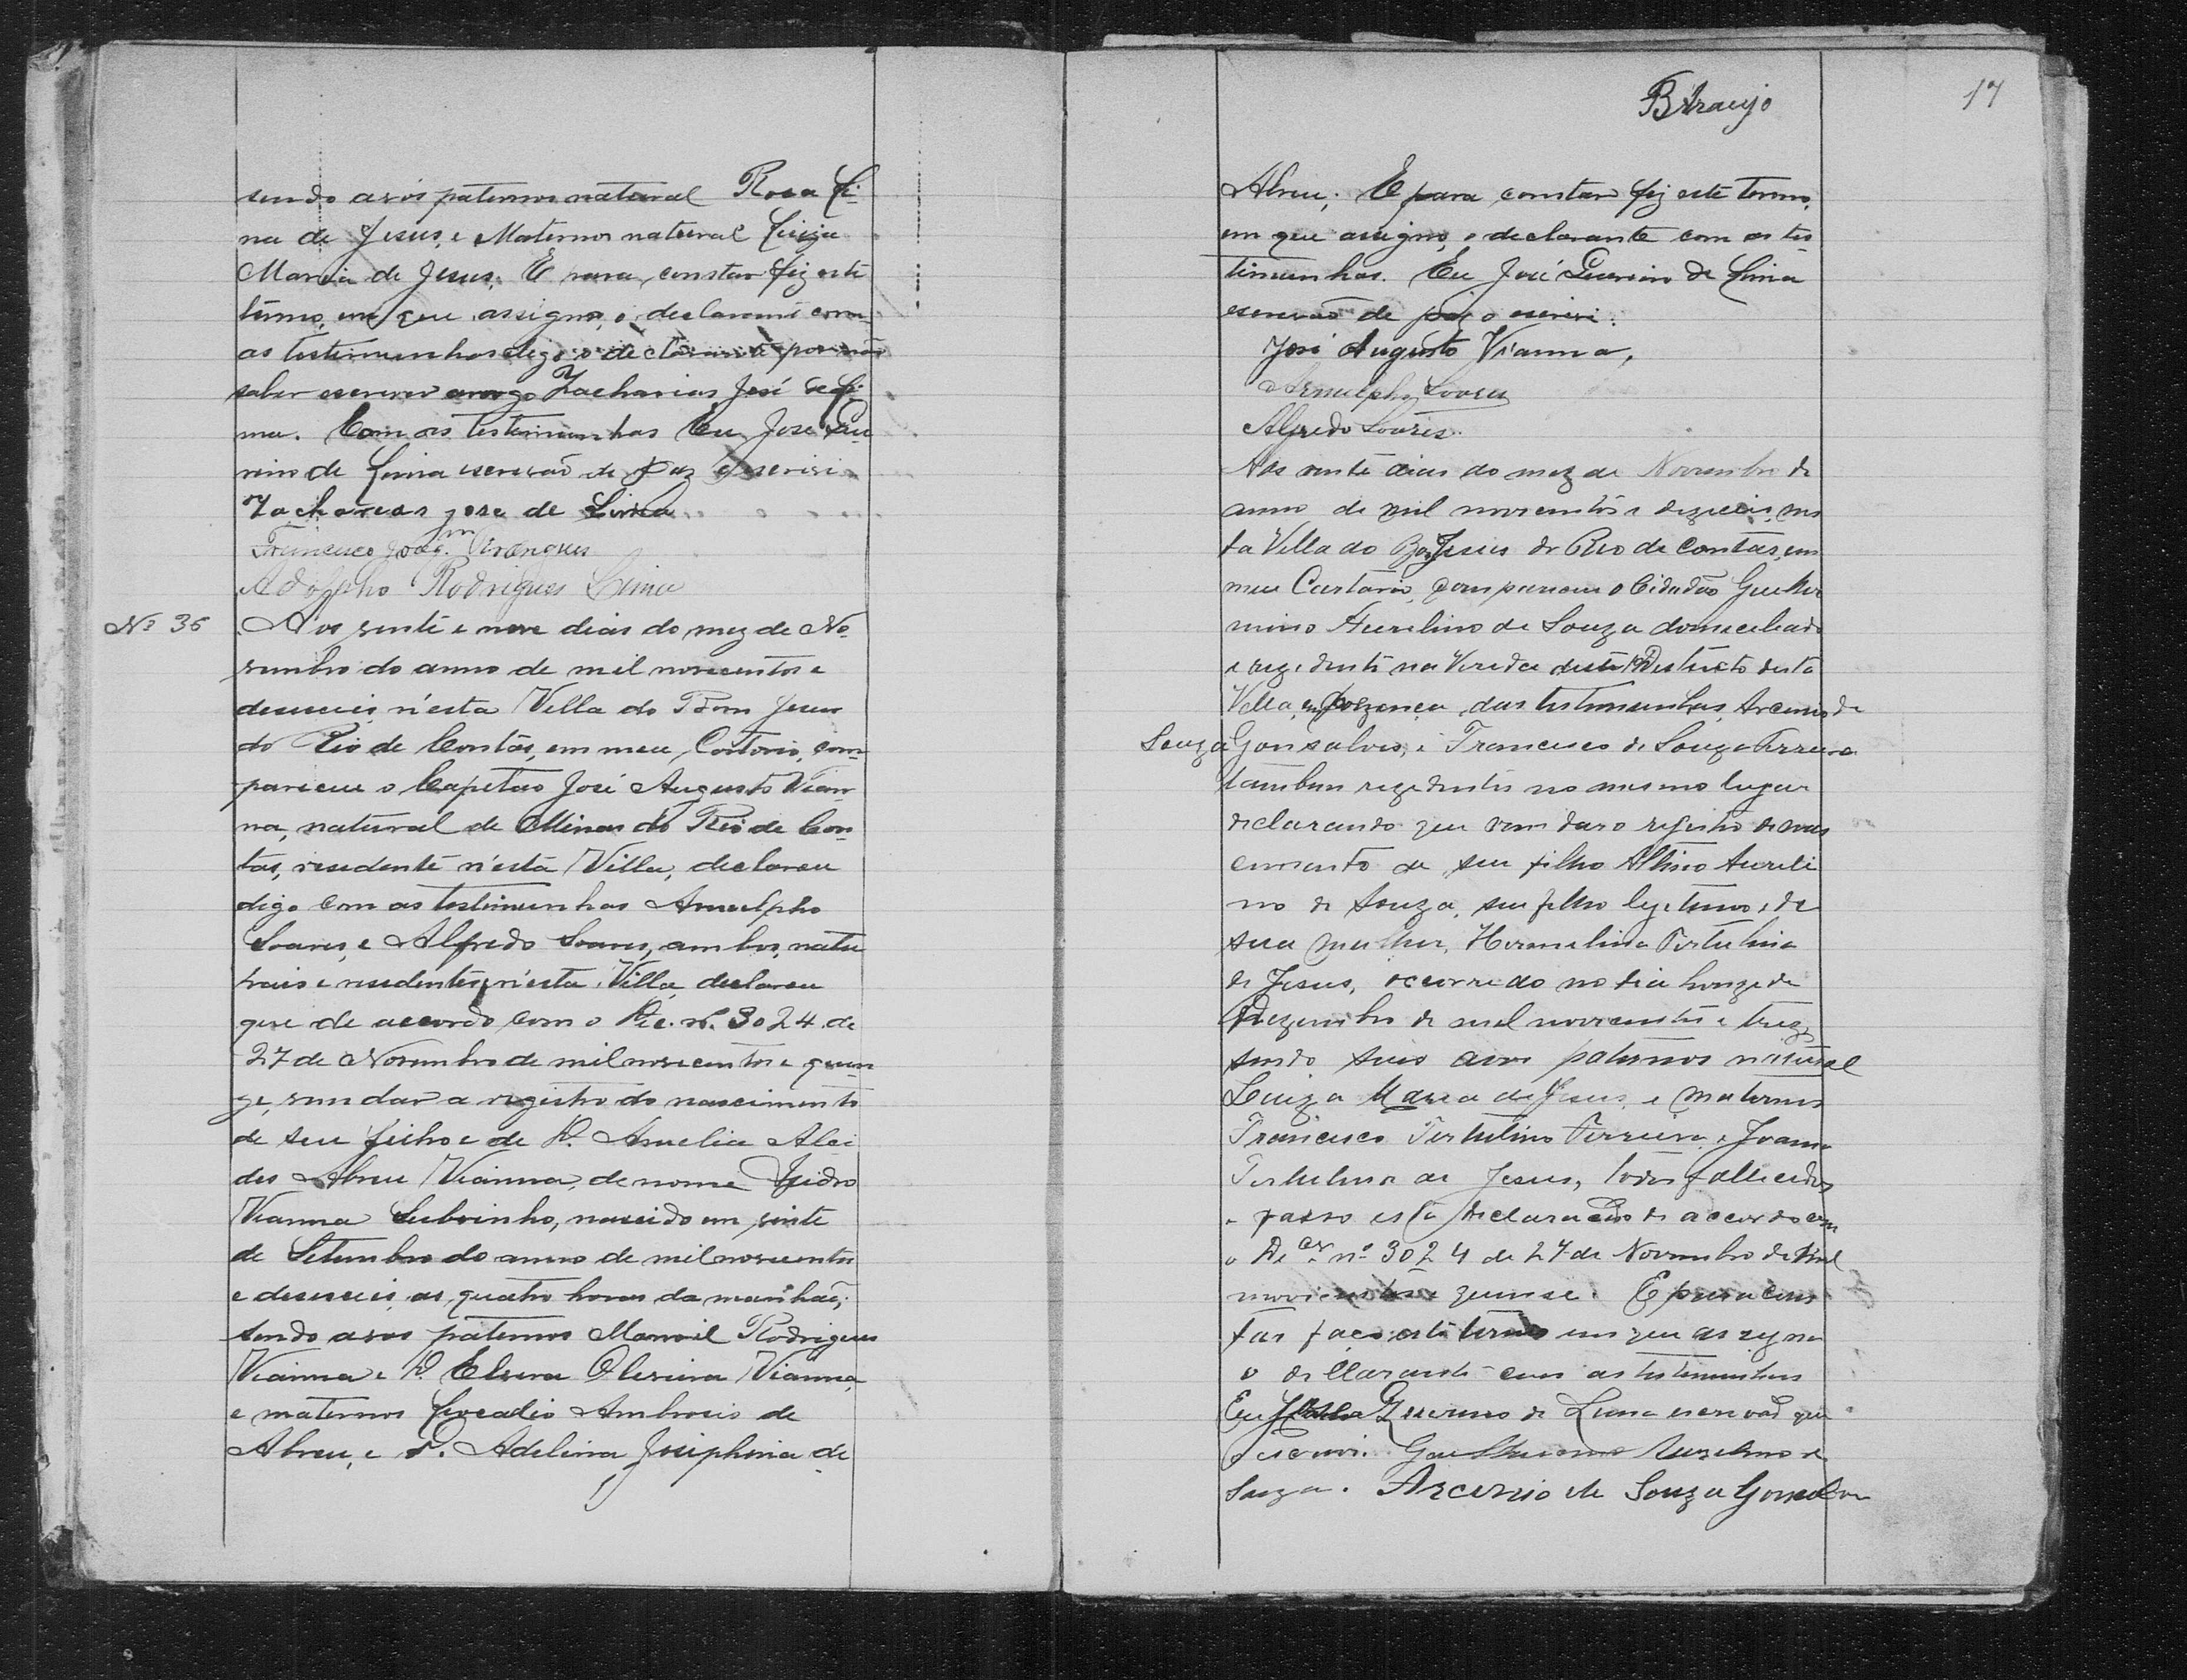 sendo avós paternos natural Rosa Li-
na de Jesus, e Maternos natural Luiza
Maria de Jesus. E para constar fiz este
termo, em que assigna, o declarante com
as testimunhas digo o declarante por não
saber escrever arogo Zacharias José de Li-
ma. Com as testimunhas Eu José Gue
rino de Lima escrivão de paz o escrivi
Zacharias jose de Lima
Francisco Joaqm.
Adolpho Rodrigues Lima
No 36
Aos vinte e nove dias do mez de No-
vembro do anno de mil novecentos e
deseseis n'esta Villa do Bom Jesus
do Rio de Contas, em meu Cartorio, com-
pareceu o Capitão José Augusto Vian-
na, natural de Minas do Rio de Con-
tas, residente n'esta Villa, declarou
digo com as testimunhas Arnulpho
Soares, e Alfredo Soares, ambos, natu
raes e residentes n'esta Villa, declarou
que de accordo com o Dec. no. 3024 de
27 de Novembro de mil novecentos e quin-
ze, vem dar a registro do nascimento
de seu filho e de D. Amelia Alci
des Abreu Vianna, de nome Izidro
Vianna Sobrinho, nascido em vinte
de Setembro do anno de mil novecentos
e deseseis, as quatro horas da manhaã;
sendo avós paternos Manoel Rodrigues
Vianna e D. Olivina Vianna,
e maternos Leocadio Ambrosio de
Abreu, e D. Adelina Josephina de
BAraujo
17
Abreu; E para constar fiz este termo,
em que assigna, o declarante com as tes
timunhas. Eu José Guerino de Lima
escrivão de paz o escrivi.
José Augusto Vianna,
Arnulpho Soares
Alfredo Soares.
Aos vinte dias do mez de Novembro de
anno de mil novecentos e dezeceis, nes
ta Villa do Bom Jesus do Rio de Contas, em
meu Cartorio, compareceu o Cidadão Guilher
mino Aurelino de Souza domeciliado
e rezidente na Vereda deste Destricto desta
Villa, em prezença das testimunhas, Arcenio de
Souza Gonsalves, e Francisco de Souza Ferreira
tambem rezidentes no mesmo lugar
declarando que vem dar o registro de nas
cimento de seu filho Altino Aureli
no de Souza, seu filho legitimo e de
sua mulher, Hermelina Tertulina
de Jesus, occorrido no dia honze de
Dezembro de mil novecentos e treze,
sendo seus avós paternos natural
Luiza Maria de Jesus, e maternos
Francisco Tertulino Ferreira, e Joanna
Tertulina de Jesus, todos fallecidos
e passo esta declaração de accordo com
o Decr. no 3024 de 27 de Novembro de Mil
novicentos e quinse. E para cons
tar faço este termo em que assigna
o decllarante com as testemunhas
Eu José Guerino de Lima escrivão que
escrivi. Guilhermino Aurelino de
Souza. Arcenio de Souza Gonsalves